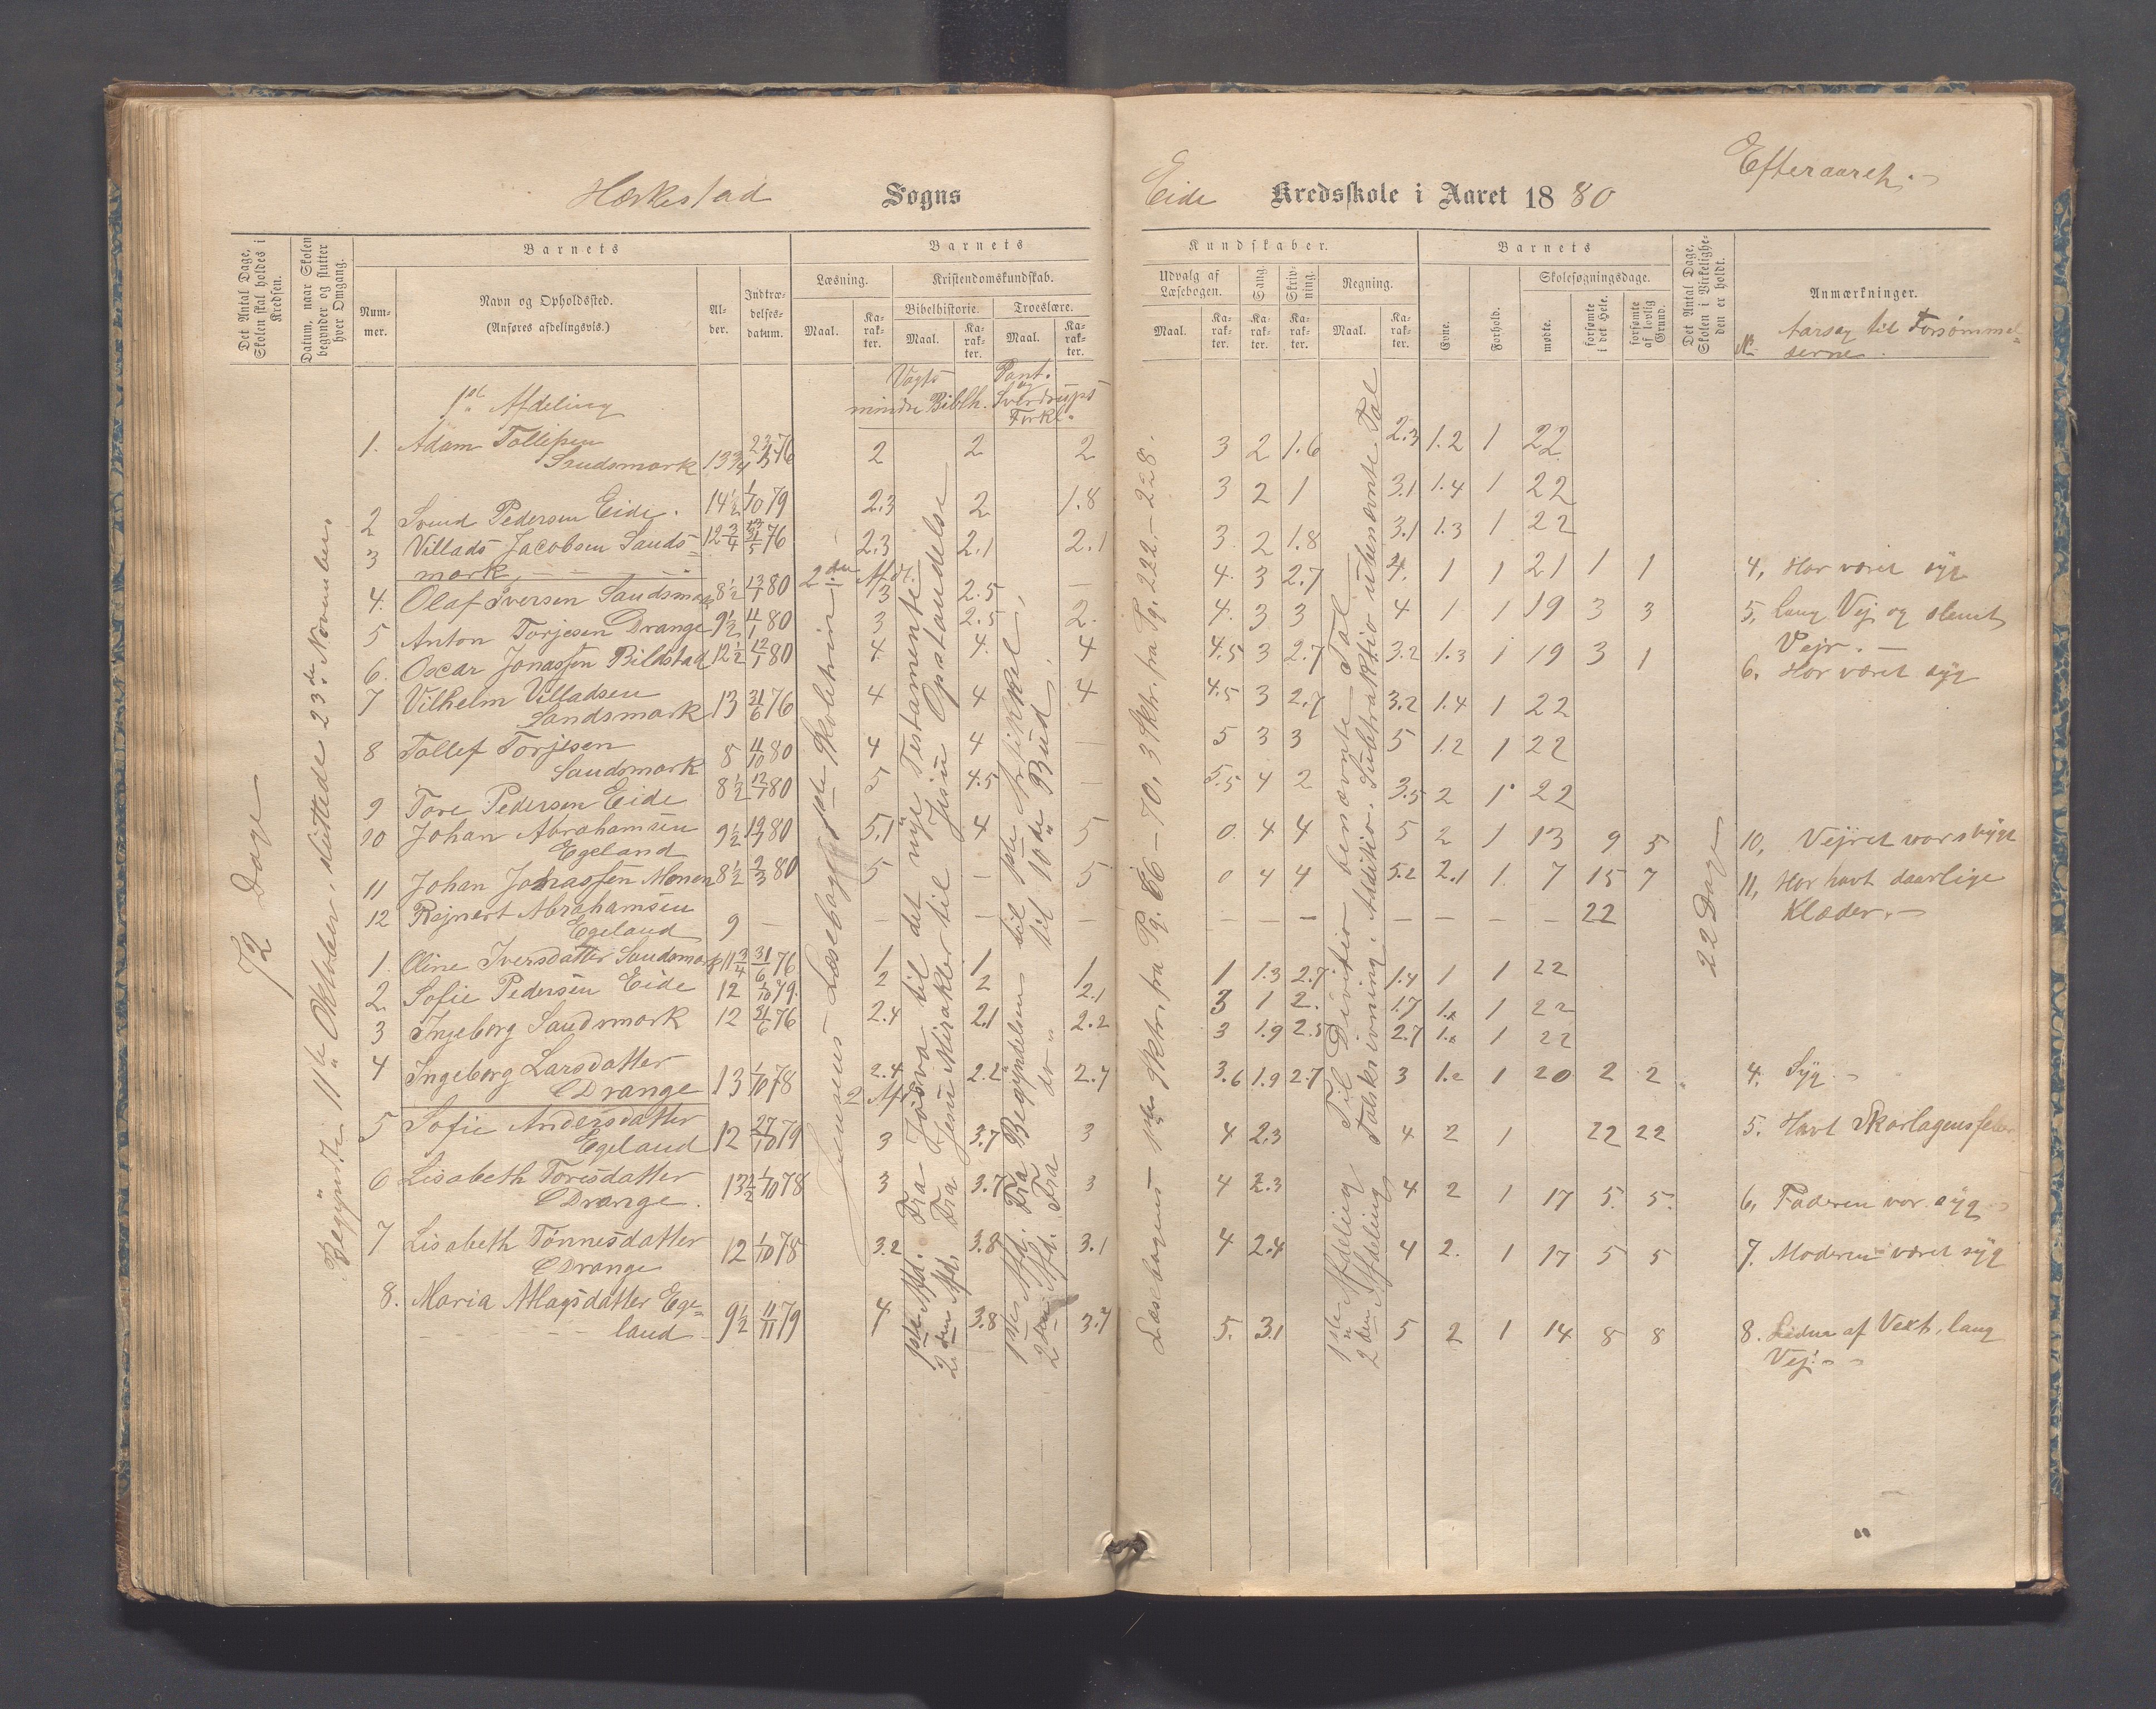 Hæskestad Sogns
Eide Kredsskole i Aaret 1880
Efteraaret.
Det Antal Dage, Skolen skal holdes i Kredsen.
Datum, naar Skolen begynder og slutter hver Omgang.
Barnets
Num-
mer.
Navn og Opholdssted.
(Anføres afdelingsvis.)
Al-
der.
Indtræ-
delses-
datum.
Barnets
Læsning.
Kristendomskundskab.
Bibelhistorie.
Troeslære.
Maal.
Ka-
rak-
ter.
Maal.
Ka-
rak-
ter.
Maal.
Ka-
rak-
ter.
Kundskaber.
Udvalg af
Læsebogen.
Sang.
Skriv-
ning.
Regning.
Maal.
Ka-
rak-
ter.
Ka-
rak-
ter.
Ka-
rak-
ter.
Maal.
Ka-
rak-
ter.
Barnets
Evne.
Forhold.
Skolesøgningsdage.
mødte.
forsømte i det Hele.
forsømte af lovlig Grund.
Det Antal Dage, Skolen i Virkelighe-
den er holdt.
Anmærkninger.
No. Aarsag til Forsømmel-
serne.
72 Dage
Begyndte 11te Oktober, sluttede 23de November
1ste Afdeling
Vogts
mindre Biblh.
Pont. og
Sverdrups
Forkl.
1. Adam Tollefsen
Sandsmark 13 3/4 76 2 2 2 3 2 1.6 2.3 1.2 1 22
2 Svend Pedersen Eide. 14 1/2 1/10 79 2.3 2 1.8 3 2 1 3.1 1.4 1 22
3 Villads Jacobsen Sands-
mark 12 3/4 76 2.3 2.1 2.1 3 2 1.8 3.1 1.3 1 22
2den Afdl.
4. Olaf Iversen Sandsmark 8 1/2 80 3 2.5 — 4. 3 2.7 4. 1 1 21 1 1 4, Har været syg
5 Anton Torjesen Drange 9 1/2 80 3 2.5 2. 4. 3 3 4 1 1 19 3 3 5, Lang Vej og slemt
Vejr. —
6. Oscar Jonassen Bilstad 12 1/2 12/1 80 4 4. 4 4.5 3 2.7 3.2 1.3 1 19 3 1 6. Har været syg
7 Vilhelm Villadsen
Sandsmark 13 21/6 76 4 4 4 4.5 3 2.7 3.2 1.4 1 22
8 Tollef Torjesen
Sandsmark 8 80 4 4 — 5 3 3 5 1.2 1 22
9 Tore Pedersen Eide 8 1/2 80 5 4.5 — 5.5 4 2 3.5 2 1 22
10 Johan Abrahamsen
Egeland 9 1/2 80 5.1 4 5 0. 4 4 5 2 1 13 9 5 10, Vejret var stygt
11 Johan Jonassen Monen 8 1/2 2/3 80 5 — 5 0 4 4 5.2 2.1 1. 7 15 7 11, Har havt daarlige
Klæder. —
12 Rejnert Abrahamsen
Egeland 9 — — — — — — — — — — — 22
1. Oline Iversdatter Sandsmark 11 3/4 31/6 76 1 1 1 1 1.3 2.7 1.4 1 1 22
2 Sofie Pedersen Eide 12 1/10 79. 2 2 2.1 3 1 2. 1.7 1 22
3 Ingeborg Sandsmark 12 21/6 76 2.4 2.1 2.2 3 1.9 2.5 2.7 1 22
4 Ingeborg Larsdatter
Drange 13 1/10 78 2.4 2.2 2.7 3.6 1.9 2.7 3 1.2 1 20 2 2 4. Syg —
2 Afd.
5 Sofie Andersdatter
Egeland 12 27/10 79 3 3.7 3 4 2.3 4 2 1 22 22 5. Havt Skarlagensfeber
6 Lisabeth Torisdatter
Drange. 13 1/2 1/10 78 3 3.7 3 4 2.3 4 2 1 17 5. 5. 6, Faderen var syg
7 Lisabeth Tønnesdatter
Drange 12 1/10 78 3.2 3.8 3.1 4 2.4 4 2. 1 17 5 5 7. Moderen været syg
8. Maria Atlagsdatter Ege-
land 9 1/2 11/11 79 4 3.8 3.7 5. 3.1 5 2 1 14 8 8 8. Lider af Vext, lang
Vej. —
Jensens Læsebog 1ste Skoletrin
1ste Afd. Fra Josva til det nye Testamente
2den Afd. Fra Jesu Mirakler til Jesu Opstandelse
1ste Afd. Fra Begyndelsen til 1ste Artikkel.
2den Afd. Fra do " til 10de Bud.
Læsebogens 1ste Sktr. fra Pg. 66 — 70, 3 Sktr. fra Pg. 222 — 228.
1ste Afdeling Til Division benævnte Tal
2den Afdeling Talskrivning. Addition. Subtraktion ubenævnte Tal
22 Dage